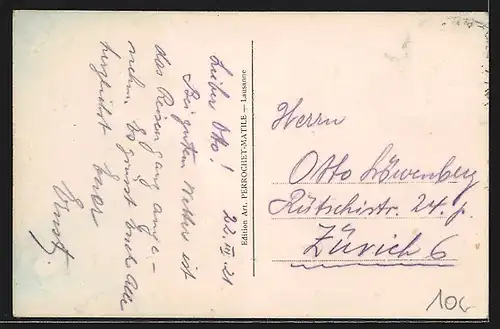 22. III. 21
Lieber Otto!
Bei gutem Wetter ist
das Reisen ganz ange-
nehm. Es grüsst Euch Alle
herzlichst Euer
Ernst.
Edition Art. PERROCHET-MATILE — Lausanne
Herrn
Otto Löwenberg
Rütschistr. 24.
Zürich 6
10.-